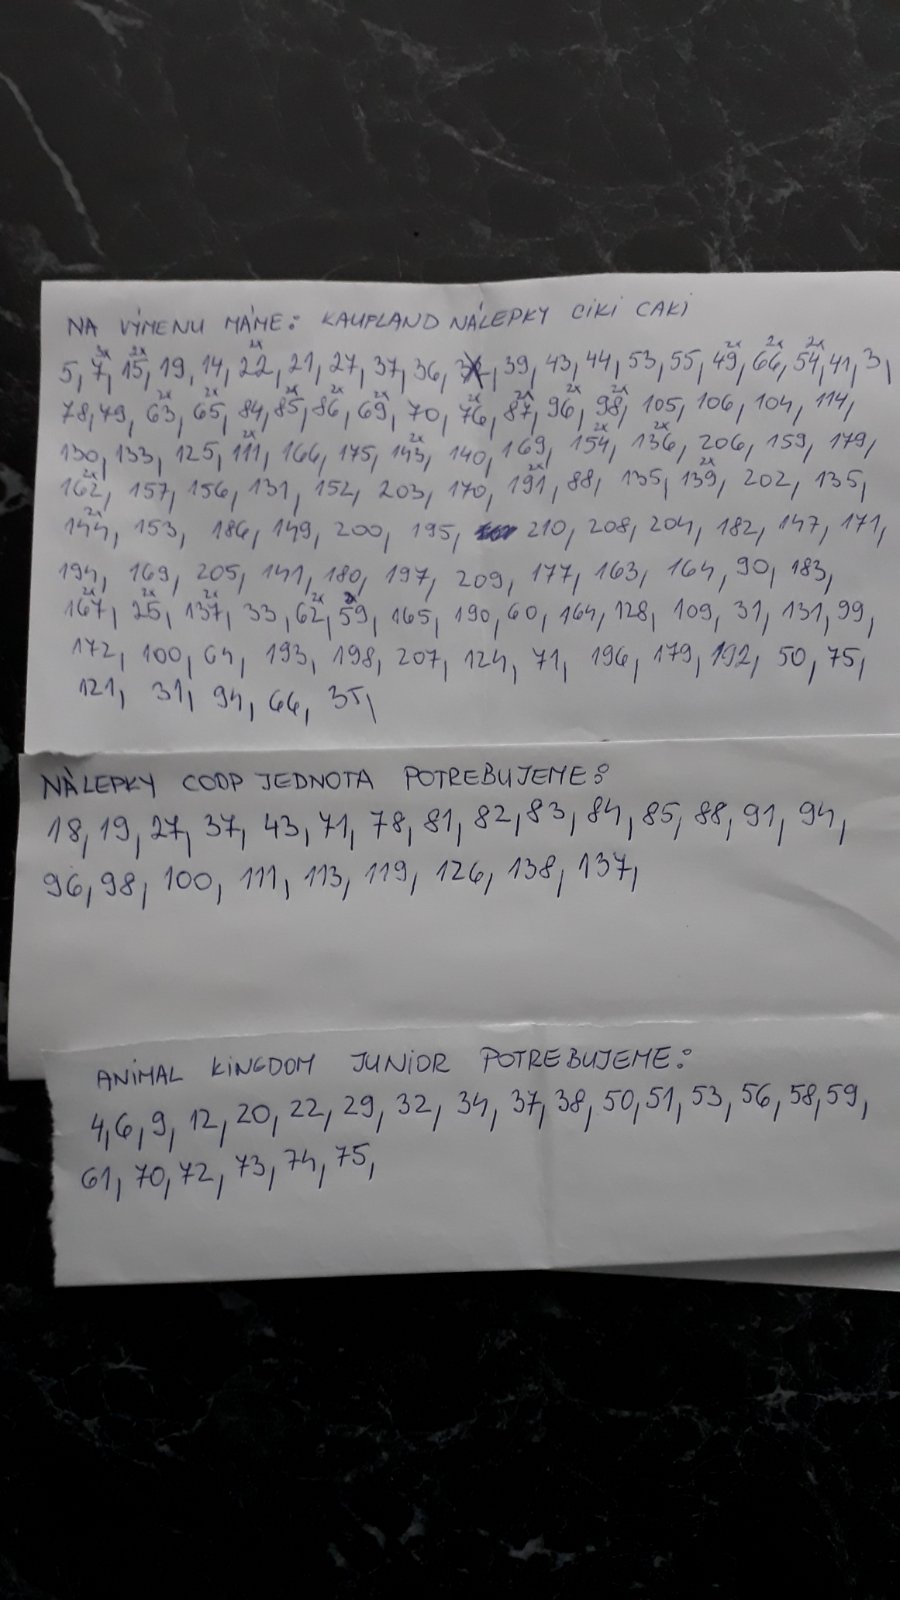 NA VÝMENU MÁME: KAUFLAND NÁLEPKY CIKI CAKI
5, 7 3x, 15 2x, 19, 14, 22 2x, 21, 27, 37, 36, 39, 43, 44, 53, 55, 49 2x, 66 2x, 54 2x, 41, 3,
78, 79, 63 2x, 65 2x, 84, 85 2x, 86 2x, 69 2x, 70, 76 2x, 87 2x, 96 2x, 98 2x, 105, 106, 104, 114,
130, 133, 125, 111 2x, 166, 175, 143 2x, 140, 169, 154 2x, 136 2x, 206, 159, 179,
162 2x, 157, 156, 131, 152, 203, 170, 191 2x, 88, 135, 139 2x, 202, 135,
144 2x, 153, 186, 149, 200, 195, 210, 208, 204, 182, 147, 171,
194, 169, 205, 141, 180, 197, 209, 177, 163, 164, 90, 183,
167 2x, 25 2x, 137 2x, 33, 62 2x, 59, 165, 190, 60, 164, 128, 109, 31, 131, 99,
172, 100, 64, 193, 198, 207, 124, 71, 196, 179, 192, 50, 75,
121, 31, 94, 66, 35,
NÁLEPKY COOP JEDNOTA POTREBUJEME:
18, 19, 27, 37, 43, 71, 78, 81, 82, 83, 84, 85, 88, 91, 94,
96, 98, 100, 111, 113, 119, 126, 138, 137,
ANIMAL KINGDOM JUNIOR POTREBUJEME:
4, 6, 9, 12, 20, 22, 29, 32, 34, 37, 38, 50, 51, 53, 56, 58, 59,
61, 70, 72, 73, 74, 75,